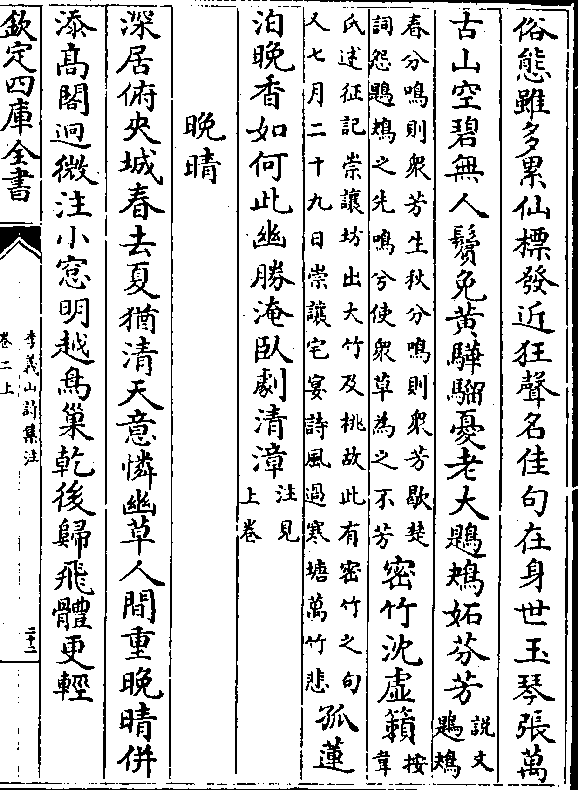 俗態雖多累仙標發近狂聲名佳句在身世玉琴張萬
古山空碧無人鬢免黃驊騮憂老大鶗鴂妬芬芳說文鶗鴂
春分鳴則衆芳生秋分鳴則衆芳歇楚
詞怨鶗鴂之先鳴兮使衆草為之不芳
密竹沈虛籟按韋
氏述征記崇讓坊出大竹及桃故此有密竹之句
又七月二十九日崇讓宅宴詩風過寒塘萬竹悲
孤蓮
泊晚香如何此幽勝淹臥劇清漳注見上卷
晚晴
深居俯夾城春去夏猶清天意憐幽草人間重晚晴併
添髙閣迥微注小窓明越鳥巢乾後歸飛體更輕
欽定四庫全書
李義山詩集注
卷二上
二十二